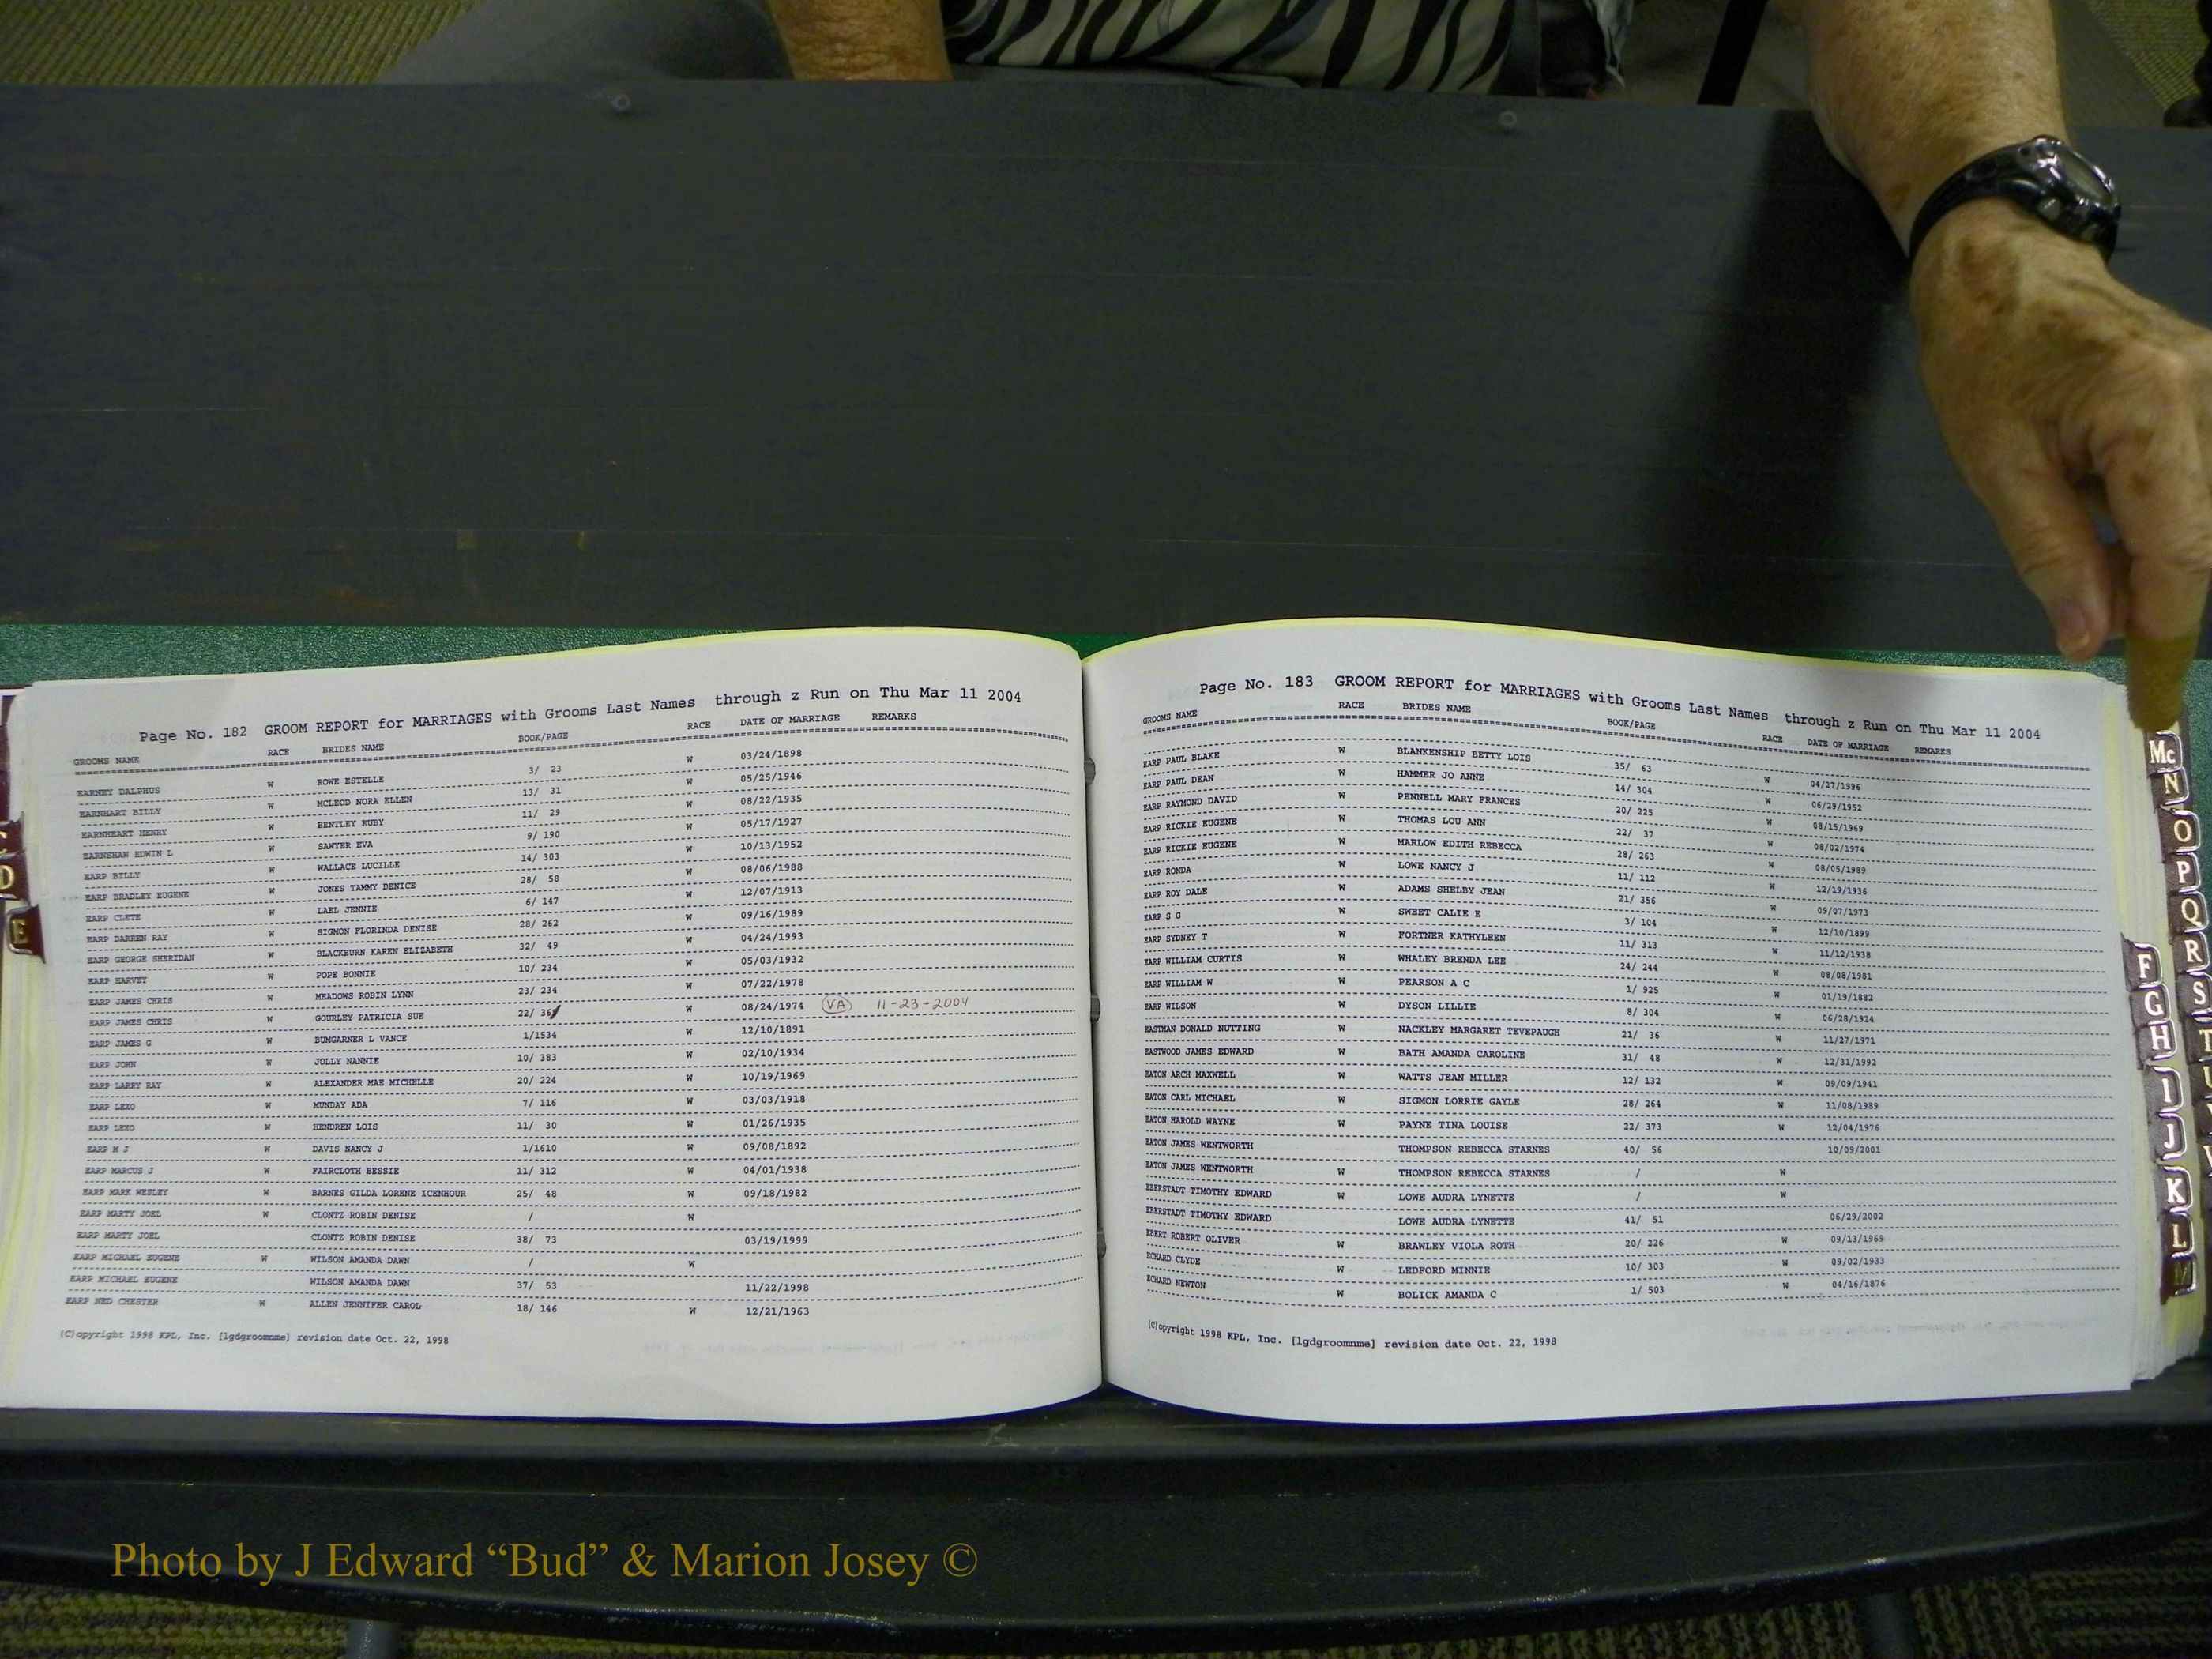 Page No. 182 GROOM REPORT for MARRIAGES with Grooms Last Names through z Run on Thu Mar 11 2004
GROOMS NAME RACE BRIDES NAME BOOK/PAGE RACE DATE OF MARRIAGE REMARKS
EARNEY DALPHUS W ROWE ESTELLE 3/ 23 W 03/24/1898
EARNHART BILLY W MCLEOD NORA ELLEN 13/ 31 W 05/25/1946
EARNHEART HENRY W BENTLEY RUBY 11/ 29 W 08/22/1935
EARNSHAW EDWIN L W SAWYER EVA 9/ 190 W 05/17/1927
EARP BILLY W WALLACE LUCILLE 14/ 303 W 10/13/1952
EARP BRADLEY EUGENE W JONES TAMMY DENICE 28/ 58 W 08/06/1988
EARP CLETE W LAEL JENNIE 6/ 147 W 12/07/1913
EARP DARREN RAY W SIGMON FLORINDA DENISE 28/ 262 W 09/16/1989
EARP GEORGE SHERIDAN W BLACKBURN KAREN ELIZABETH 32/ 49 W 04/24/1993
EARP HARVEY W POPE BONNIE 10/ 234 W 05/03/1932
EARP JAMES CHRIS W MEADOWS ROBIN LYNN 23/ 234 W 07/22/1978
EARP JAMES CHRIS W GOURLEY PATRICIA SUE 22/ W 08/24/1974 VA 11-23-2004
EARP JAMES G W BUMGARNER L VANCE 1/1534 W 12/10/1891
EARP JOHN W JOLLY NANNIE 10/ 383 W 02/10/1934
EARP LARRY RAY W ALEXANDER MAE MICHELLE 20/ 224 W 10/19/1969
EARP LEXO W MUNDAY ADA 7/ 116 W 03/03/1918
EARP LEXO W HENDREN LOIS 11/ 30 W 01/26/1935
EARP M J W DAVIS NANCY J 1/1610 W 09/08/1892
EARP MARCUS J W FAIRCLOTH BESSIE 11/ 312 W 04/01/1938
EARP MARK WESLEY W BARNES GILDA LORENE ICENHOUR 25/ 48 W 09/18/1982
EARP MARTY JOEL W CLONTZ ROBIN DENISE / W
EARP MARTY JOEL CLONTZ ROBIN DENISE 38/ 73 03/19/1999
EARP MICHAEL EUGENE W WILSON AMANDA DAWN / W
EARP MICHAEL EUGENE WILSON AMANDA DAWN 37/ 53 11/22/1998
EARP NED CHESTER W ALLEN JENNIFER CAROL 18/ 146 W 12/21/1963
(C)opyright 1998 KPL, Inc. [lgdgroomnme] revision date Oct. 22, 1998
Page No. 183 GROOM REPORT for MARRIAGES with Grooms Last Names through z Run on Thu Mar 11 2004
GROOMS NAME RACE BRIDES NAME BOOK/PAGE RACE DATE OF MARRIAGE REMARKS
EARP PAUL BLAKE W BLANKENSHIP BETTY LOIS 35/ 63 W 04/27/1996
EARP PAUL DEAN W HAMMER JO ANNE 14/ 304 W 06/29/1952
EARP RAYMOND DAVID W PENNELL MARY FRANCES 20/ 225 W 08/15/1969
EARP RICKIE EUGENE W THOMAS LOU ANN 22/ 37 W 08/02/1974
EARP RICKIE EUGENE W MARLOW EDITH REBECCA 28/ 263 W 08/05/1989
EARP RONDA W LOWE NANCY J 11/ 112 W 12/19/1936
EARP ROY DALE W ADAMS SHELBY JEAN 21/ 356 W 09/07/1973
EARP S G W SWEET CALIE E 3/ 104 W 12/10/1899
EARP SYDNEY T W FORTNER KATHYLEEN 11/ 313 W 11/12/1938
EARP WILLIAM CURTIS W WHALEY BRENDA LEE 24/ 244 W 08/08/1981
EARP WILLIAM W W PEARSON A C 1/ 925 W 01/19/1882
EARP WILSON W DYSON LILLIE 8/ 304 W 06/28/1924
EASTMAN DONALD NUTTING W NACKLEY MARGARET TEVEPAUGH 21/ 36 W 11/27/1971
EASTWOOD JAMES EDWARD W BATH AMANDA CAROLINE 31/ 48 W 12/31/1992
EATON ARCH MAXWELL W WATTS JEAN MILLER 12/ 132 W 09/09/1941
EATON CARL MICHAEL W SIGMON LORRIE GAYLE 28/ 264 W 11/08/1989
EATON HAROLD WAYNE W PAYNE TINA LOUISE 22/ 373 W 12/04/1976
EATON JAMES WENTWORTH THOMPSON REBECCA STARNES 40/ 56 10/09/2001
EATON JAMES WENTWORTH W THOMPSON REBECCA STARNES / W
EBERSTADT TIMOTHY EDWARD W LOWE AUDRA LYNETTE / W
EBERSTADT TIMOTHY EDWARD LOWE AUDRA LYNETTE 41/ 51 06/29/2002
EBERT ROBERT OLIVER W BRAWLEY VIOLA ROTH 20/ 226 W 09/13/1969
ECHARD CLYDE W LEDFORD MINNIE 10/ 303 W 09/02/1933
ECHARD NEWTON W BOLICK AMANDA C 1/ 503 W 04/16/1876
(C)opyright 1998 KPL, Inc. [lgdgroomnme] revision date Oct. 22, 1998
C
D
E
F
G
H
I
J
K
L
M
Mc
N
O
P
Q
R
S
T
U
V
Photo by J Edward “Bud” & Marion Josey ©